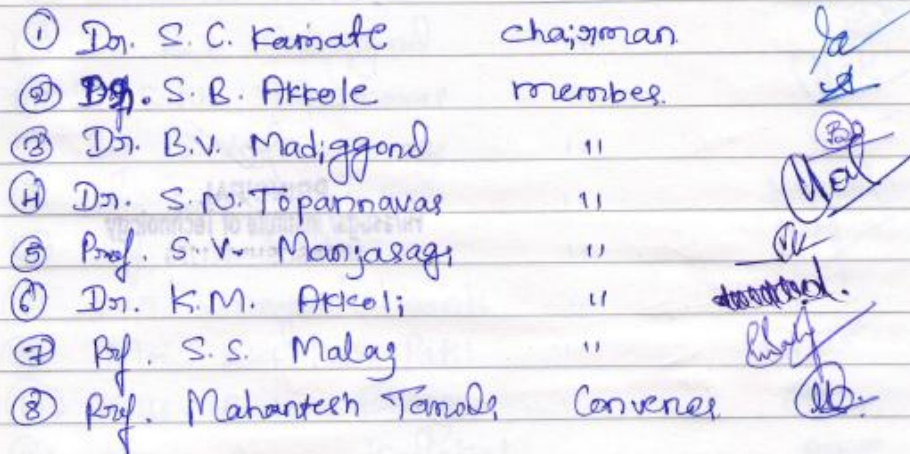 ① Dr. S. C. Kamate chairman
② Dr. S. B. Akkole member
③ Dr. B.V. Madiggond "
④ Dr. S. N. Topannavar "
⑤ Prof. S. V. Manjaragi "
⑥ Dr. K.M. Akkoli "
⑦ Prof. S. S. Malaj "
⑧ Prof. Mahantesh Tanodi Convener